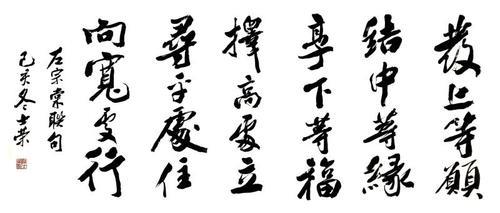 發上等願
結中等緣
享下等福
擇高處立
尋平處住
向寬處行
左宗棠聯句
己亥冬士荣